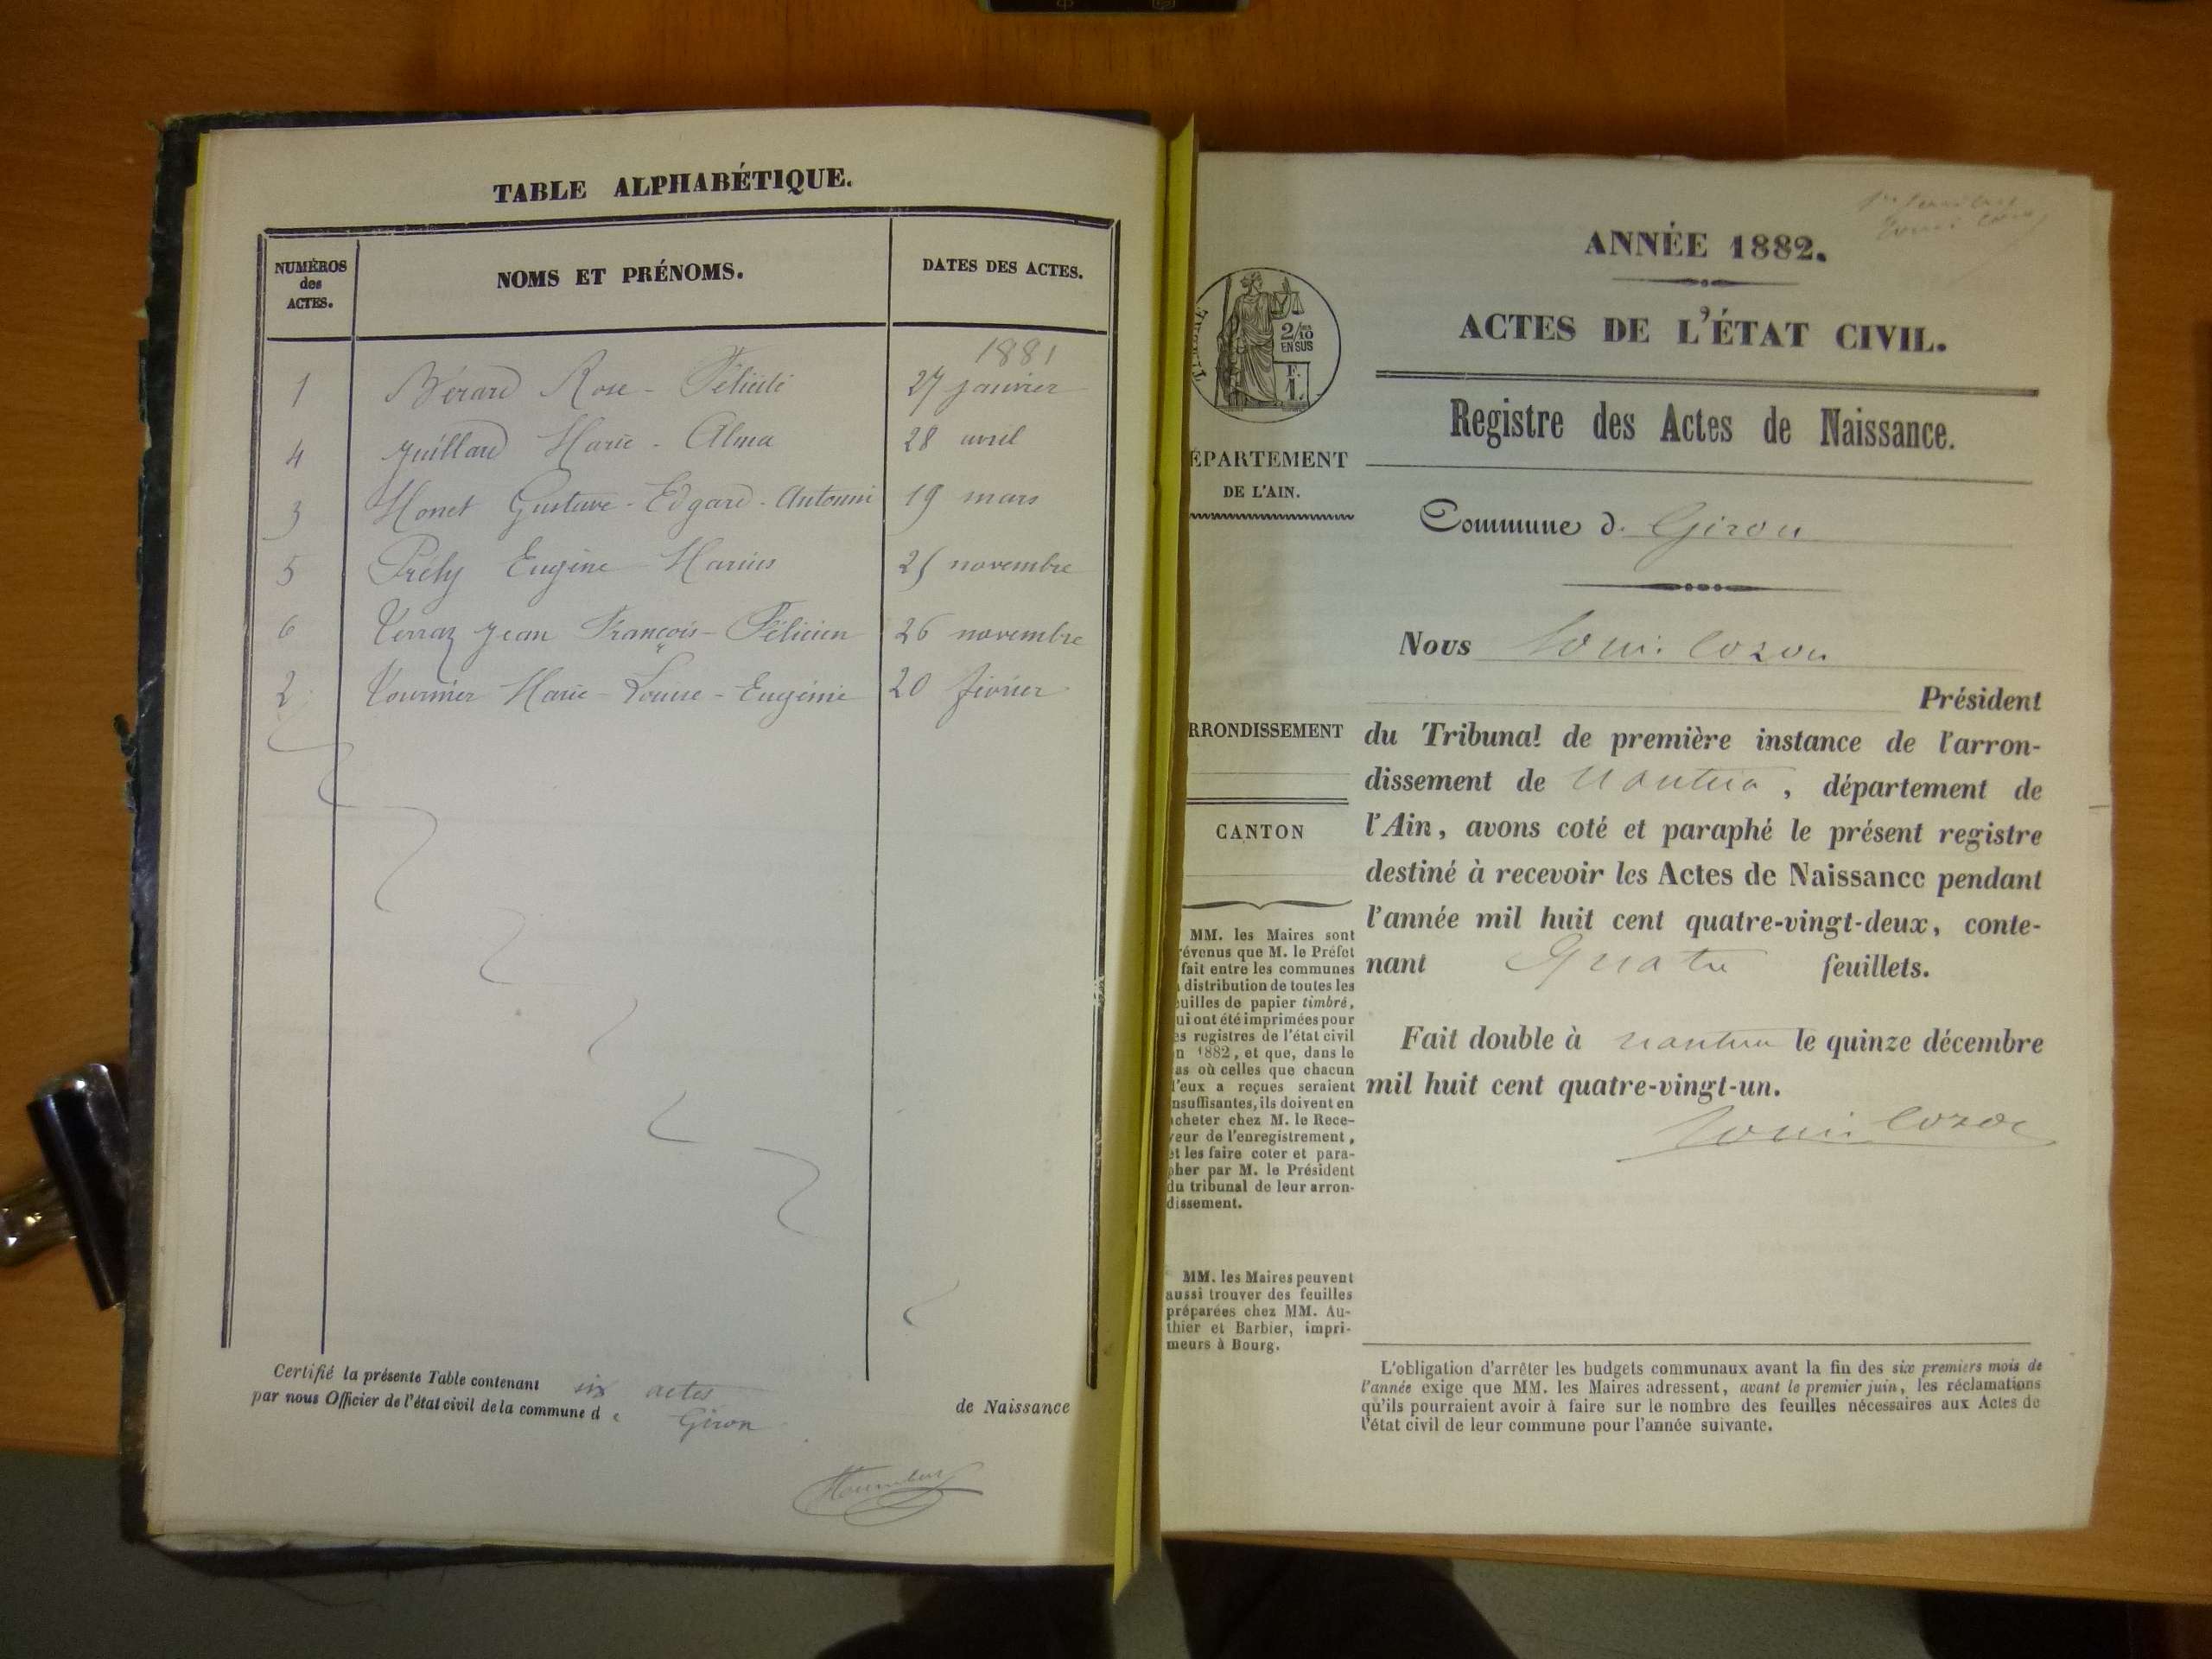 TABLE ALPHABÉTIQUE.
NUMÉROS des ACTES.
NOMS ET PRÉNOMS.
DATES DES ACTES.
1881
1 Bérard Rose - Félicité 27 janvier
4 Juillard Marie - Alma 28 avril
3 Monet Gustave - Edgard - Antonin 19 mars
5 Prély Eugène Marius 25 novembre
6 Verraz Jean François - Félicien 26 novembre
2 Tournier Marie - Louise - Eugénie 20 février
Certifié la présente Table contenant six actes de Naissance
par nous Officier de l'état civil de la commune d e Giron
ANNÉE 1882.
ACTES DE L'ÉTAT CIVIL.
TIMBRE
2/10
EN SUS
F.
1.
Registre des Actes de Naissance.
ÉPARTEMENT
DE L'AIN.
Commune d. Giron
Nous
Président
RRONDISSEMENT
du Tribunal de première instance de l'arron-
dissement de Nantua, département de
CANTON
l'Ain, avons coté et paraphé le présent registre
destiné à recevoir les Actes de Naissance pendant
l'année mil huit cent quatre-vingt-deux, conte-
nant Quatre feuillets.
Fait double à nantua le quinze décembre
mil huit cent quatre-vingt-un.
MM. les Maires sont
révenus que M. le Préfet
fait entre les communes
a distribution de toutes les
euilles de papier timbré,
ui ont été imprimées pour
es registres de l'état civil
n 1882, et que, dans le
as où celles que chacun
d'eux a reçues seraient
nsuffisantes, ils doivent en
acheter chez M. le Rece-
veur de l'enregistrement,
et les faire coter et para-
pher par M. le Président
du tribunal de leur arron-
dissement.
MM. les Maires peuvent
aussi trouver des feuilles
préparées chez MM. Au-
thier et Barbier, impri-
meurs à Bourg.
L'obligation d'arrêter les budgets communaux avant la fin des six premiers mois de
l'année exige que MM. les Maires adressent, avant le premier juin, les réclamations
qu'ils pourraient avoir à faire sur le nombre des feuilles nécessaires aux Actes de
l'état civil de leur commune pour l'année suivante.